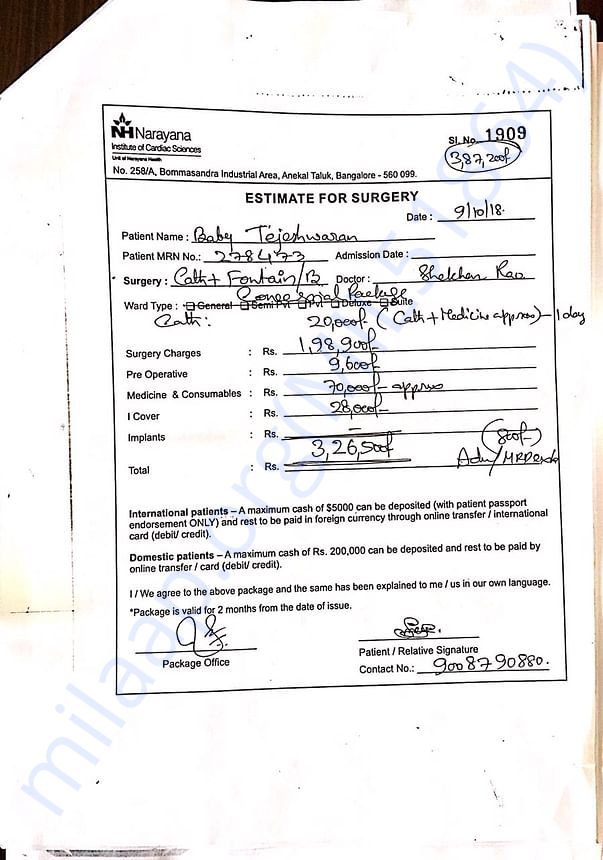 NH Narayana
Institute of Cardiac Sciences
Unit of Narayana Health
Sl. No. 1909
3,87,200/-
No. 258/A, Bommasandra Industrial Area, Anekal Taluk, Bangalore - 560 099.
ESTIMATE FOR SURGERY
Date : 9/10/18.
Patient Name : Baby Tejeshwaran
Patient MRN No.: 278473 Admission Date :
Surgery : Cath + Fontain/B Doctor : Shekhar Rao
Package
Ward Type : General Semi Pvt Pvt Deluxe Suite
Cath: 20,000/- (Cath + Medicine approx) - 1 day
Surgery Charges : Rs. 1,98,900/-
Pre Operative : Rs. 9,600/-
Medicine & Consumables : Rs. 70,000/- approx
I Cover : Rs. 28,000/-
Implants : Rs. -
(800/-)
Total : Rs. 3,26,500/-
International patients – A maximum cash of $5000 can be deposited (with patient passport
endorsement ONLY) and rest to be paid in foreign currency through online transfer / international
card (debit/ credit).
Domestic patients – A maximum cash of Rs. 200,000 can be deposited and rest to be paid by
online transfer / card (debit/ credit).
I / We agree to the above package and the same has been explained to me / us in our own language.
*Package is valid for 2 months from the date of issue.
Package Office
Patient / Relative Signature
Contact No.: 9008790880.